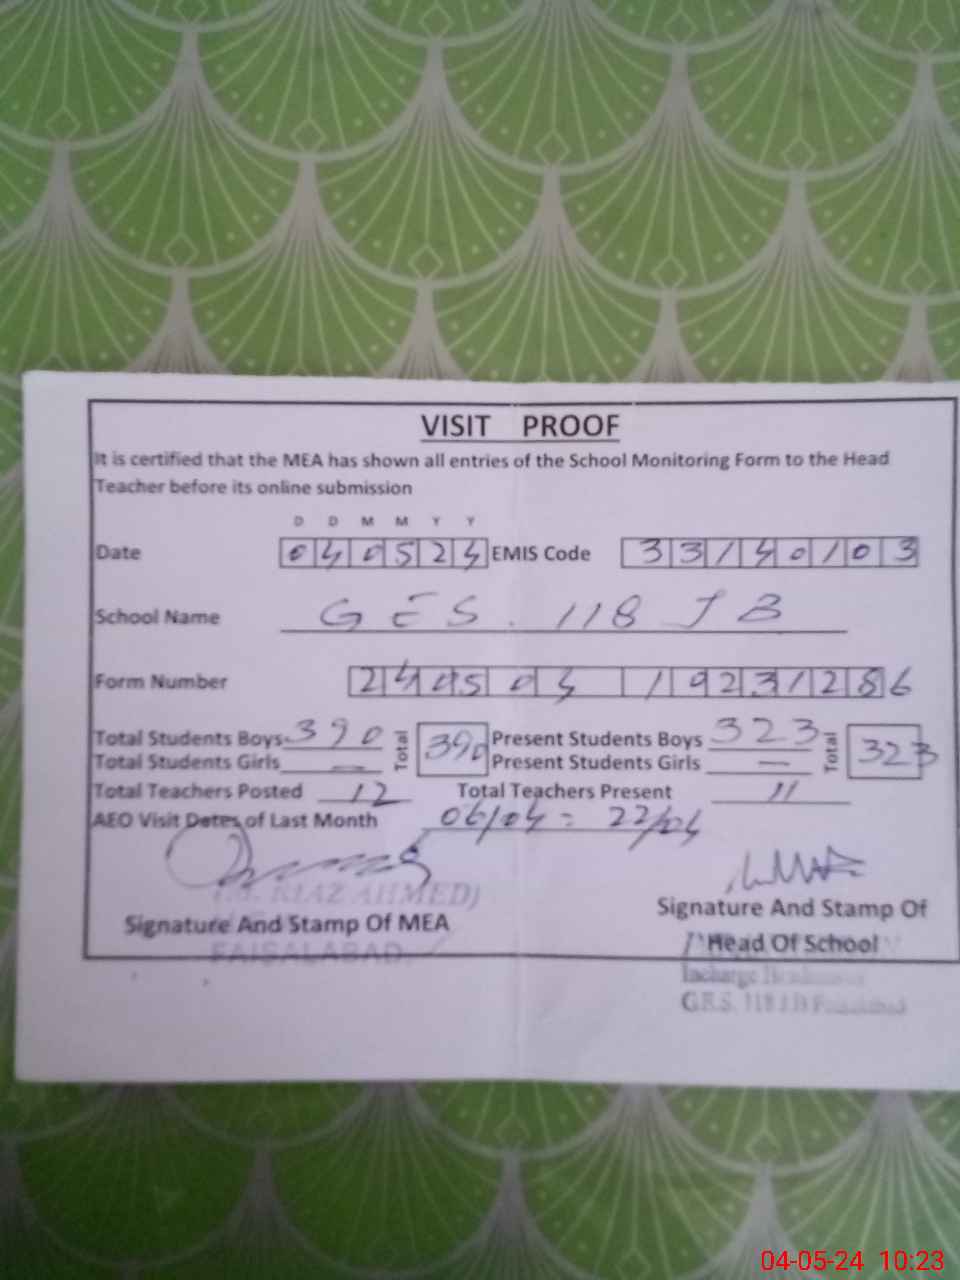 VISIT PROOF
It is certified that the MEA has shown all entries of the School Monitoring Form to the Head
Teacher before its online submission
D D M M Y Y
Date 040524 EMIS Code 33140103
School Name GES. 118 JB
Form Number 240504 19231286
Total Students Boys 390 Total 390 Present Students Boys 323 Total 323
Total Students Girls — Present Students Girls —
Total Teachers Posted 12 Total Teachers Present 11
AEO Visit Dates of Last Month 06/04 = 22/04
RIAZ AHMED)
Signature And Stamp Of MEA
FAISALABAD.
Signature And Stamp Of
Head Of School
Incharge
G.E.S. 118 J.B Faisalabad
04-05-24 10:23